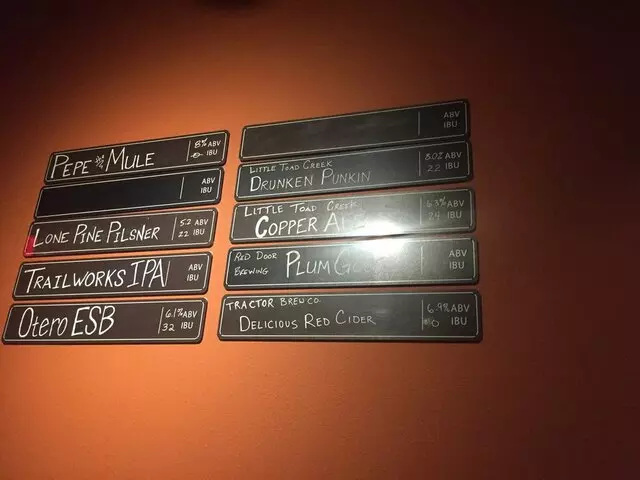 PEPE & MULE 8% ABV
-0- IBU
ABV
IBU
LONE PINE PILSNER 5.2 ABV
22 IBU
TRAILWORKS IPA ABV
IBU
Otero ESB 6.1% ABV
32 IBU
ABV
IBU
LITTLE TOAD CREEK
DRUNKEN PUNKIN 8.0% ABV
22 IBU
LITTLE TOAD CREEK
COPPER ALE ABV
29 IBU
RED DOOR
BREWING PLUM ABV
IBU
TRACTOR BREW CO.
DELICIOUS RED CIDER 6.9% ABV
0 IBU